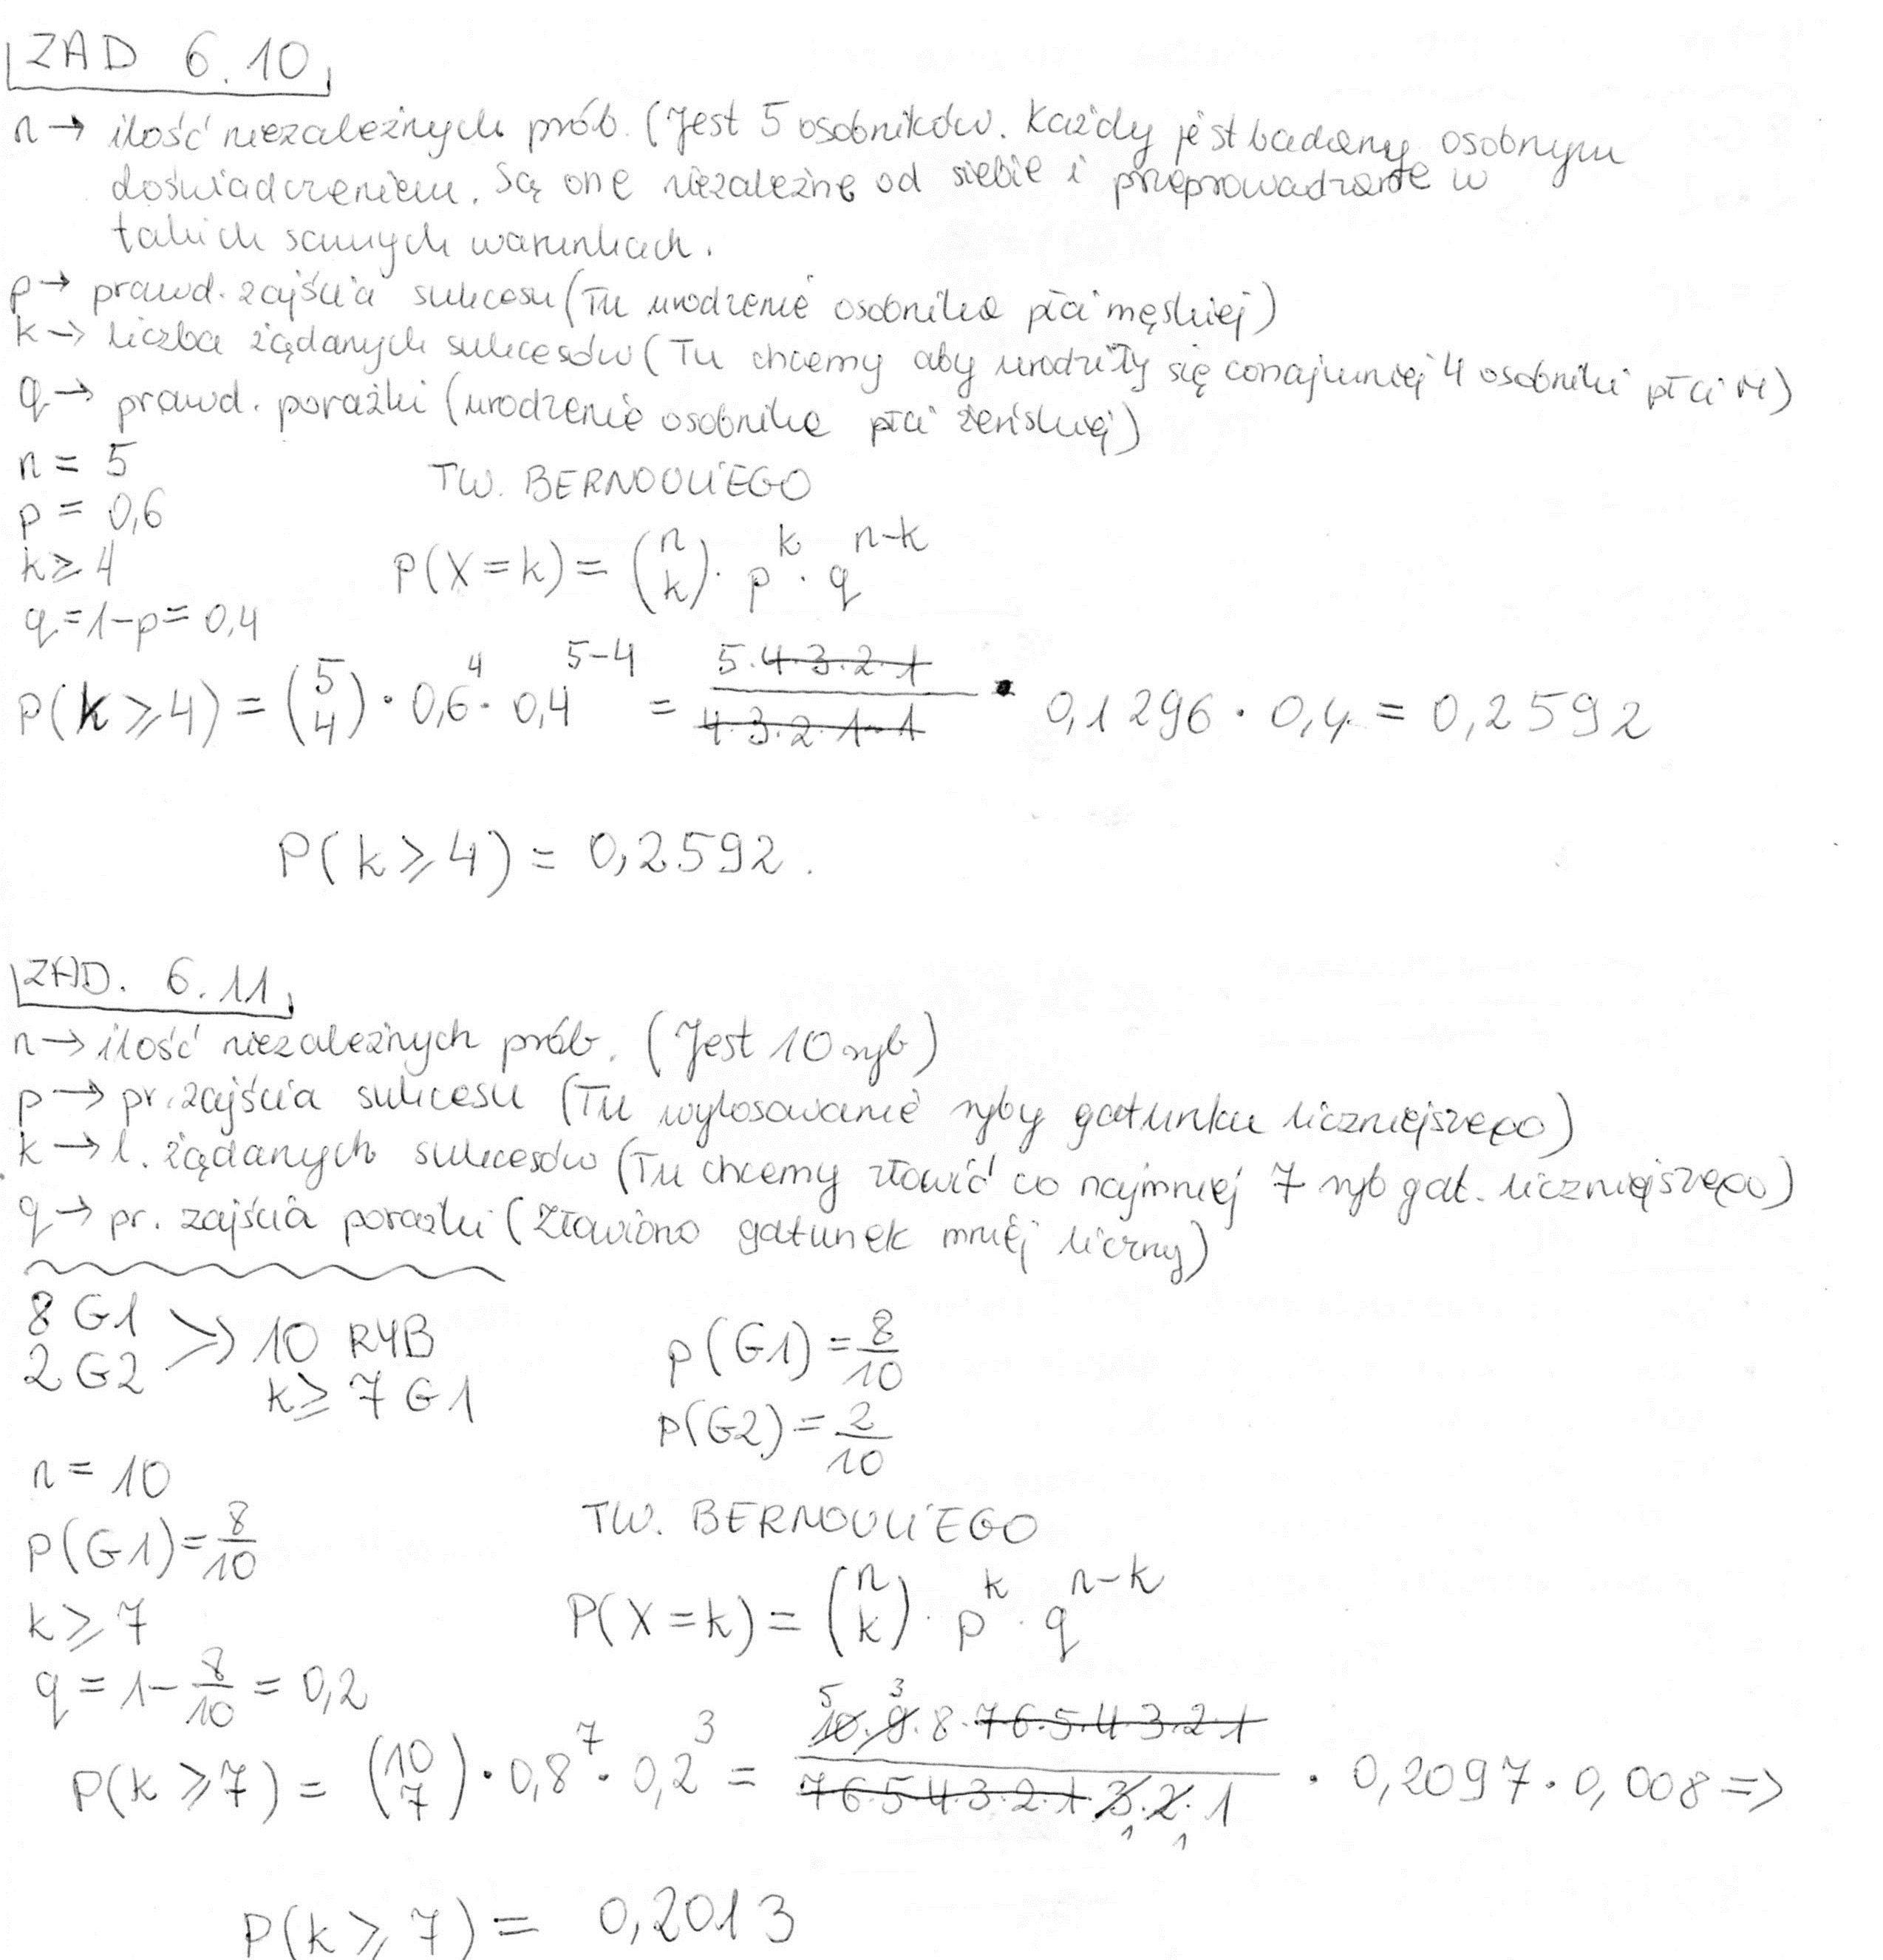 ZAD 6.10
n → ilość niezależnych prób. (Jest 5 osobników. Każdy jest badany osobnym
doświadczeniem. Są one niezależne od siebie i przeprowadzane w
takich samych warunkach.
p → prawd. zajścia sukcesu (Tu urodzenie osobnika płci męskiej)
k → liczba żądanych sukcesów (Tu chcemy aby urodziły się conajmniej 4 osobniki płci M)
q → prawd. porażki (urodzenie osobnika płci żeńskiej)
n = 5
TW. BERNOULIEGO
p = 0,6
k ≥ 4
P(X = k) = (n k) · p^k · q^(n-k)
q = 1-p = 0,4
P(k ≥ 4) = (5 4) · 0,6^4 · 0,4^(5-4) = 5·4·3·2·1 / 4·3·2·1·1 · 0,1296 · 0,4 = 0,2592
P(k ≥ 4) = 0,2592.
ZAD. 6.11
n → ilość niezależnych prób. (Jest 10 ryb)
p → pr. zajścia sukcesu (Tu wylosowanie ryby gatunku liczniejszego)
k → l. żądanych sukcesów (Tu chcemy złowić co najmniej 7 ryb gat. liczniejszego)
q → pr. zajścia porażki (złowiono gatunek mniej liczny)
8 G1
2 G2
⇒ 10 RYB
k ≥ 7 G1
p(G1) = 8/10
p(G2) = 2/10
n = 10
p(G1) = 8/10
TW. BERNOULIEGO
k ≥ 7
P(X = k) = (n k) · p^k · q^(n-k)
q = 1 - 8/10 = 0,2
P(k ≥ 7) = (10 7) · 0,8^7 · 0,2^3 = 10·9·8·7·6·5·4·3·2·1 / 7·6·5·4·3·2·1·3·2·1 · 0,2097 · 0,008 =>
5 3
1 1
P(k ≥ 7) = 0,2013